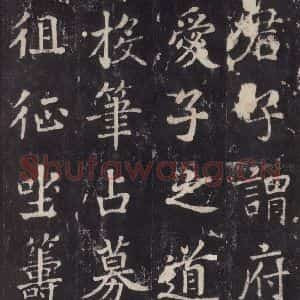 君子謂府
愛子之道
投筆占募
徂征坐籌
Shufawang.CN